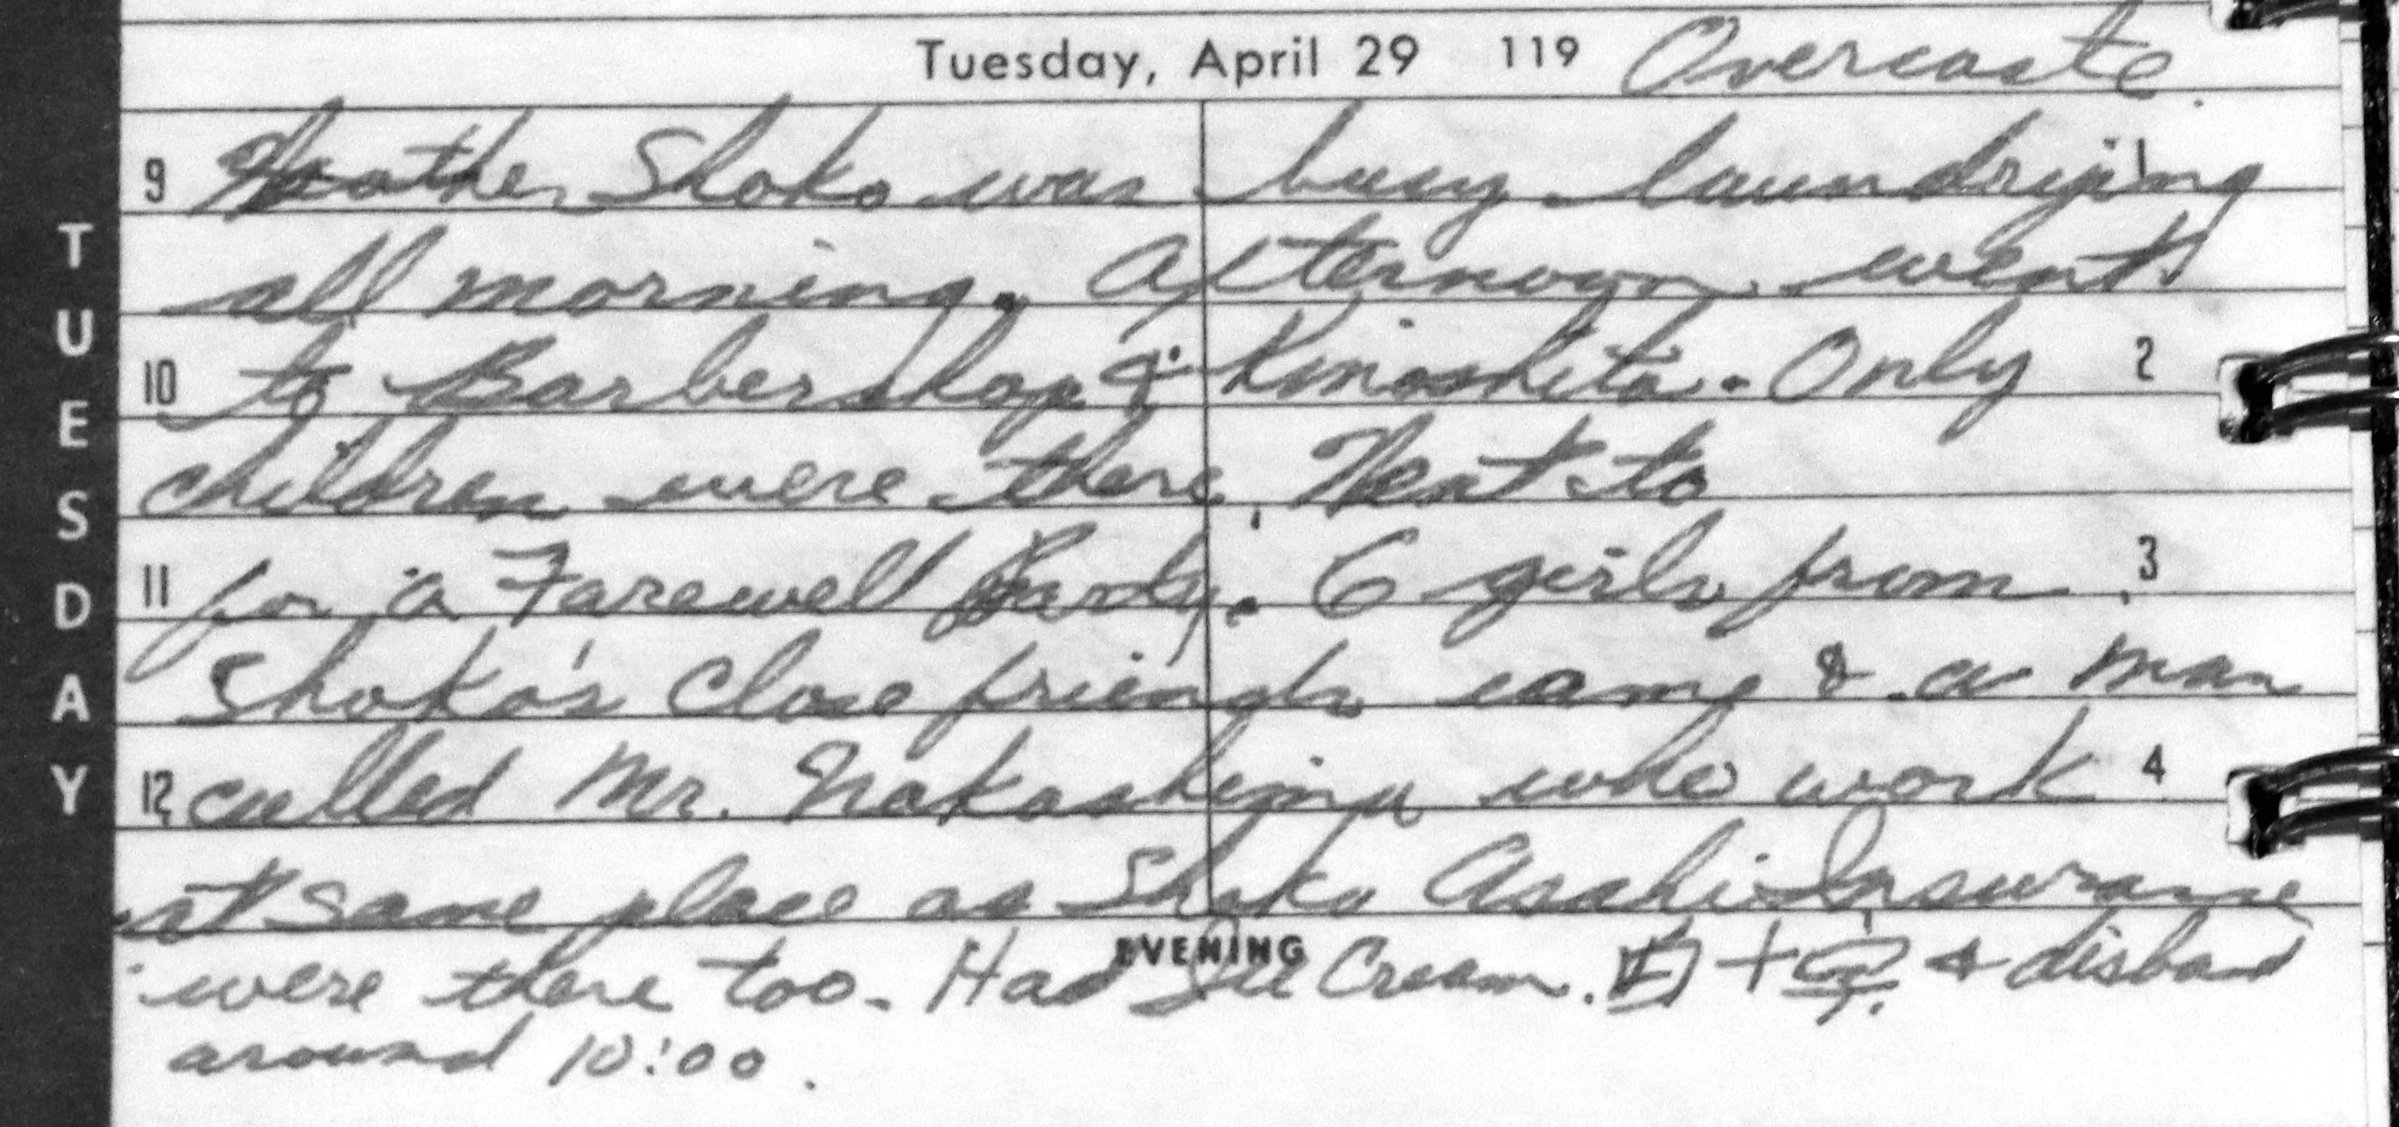 TUESDAY
Tuesday, April 29 119 Overcaste.
9 Shoko was busy laundrying 1
all morning. Afternoon went
10 to Barbershop & Kinoshita. Only 2
children were there. Went to
11 for a Farewell Party. 6 girls from 3
Shoko's close friends came & a man
12 called Mr. Nakashima who work 4
at same place as Shoko Asahi Insurance
EVENING
were there too. Had Ice Cream. + & disband
around 10:00.